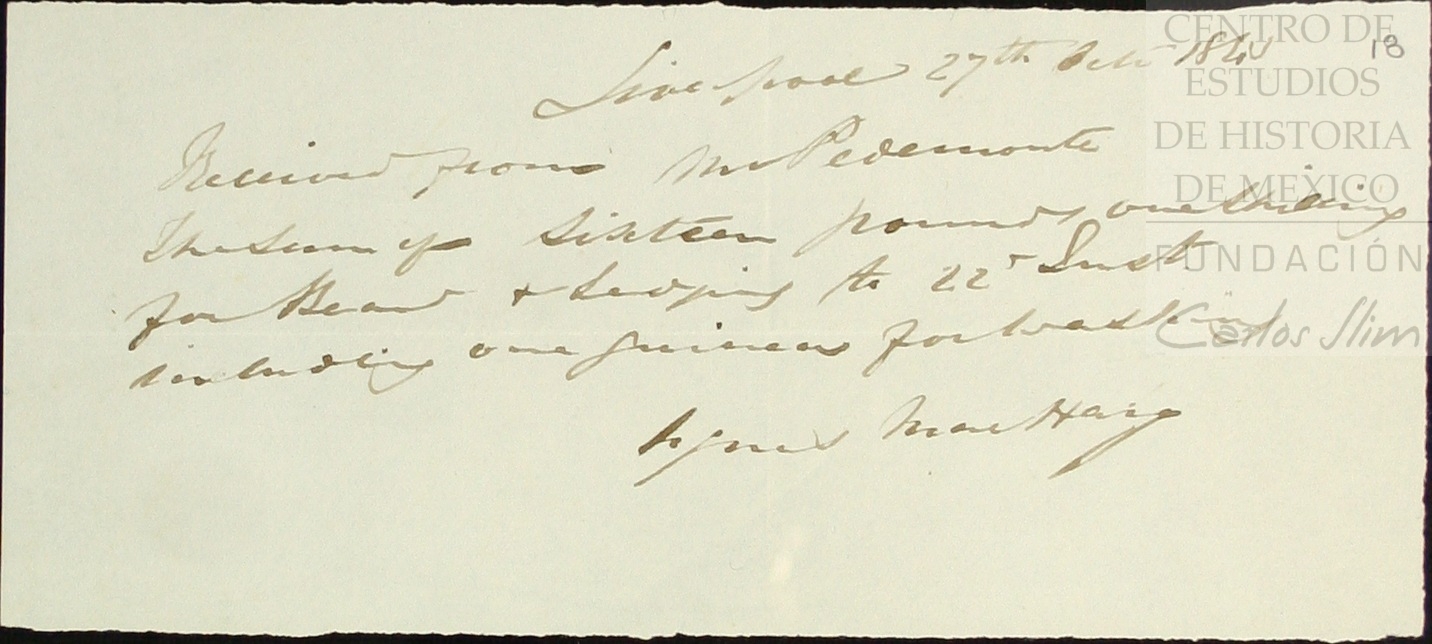 Liverpool 27th Octr
18
Received from Mr Pedemonte
The sum of Sixteen pounds one Shilling
for Board & Lodging to 22d Inst
including one guinea for Washing
Agnes MacHarg
CENTRO DE
ESTUDIOS
DE HISTORIA
DE MÉXICO
FUNDACIÓN
Carlos Slim